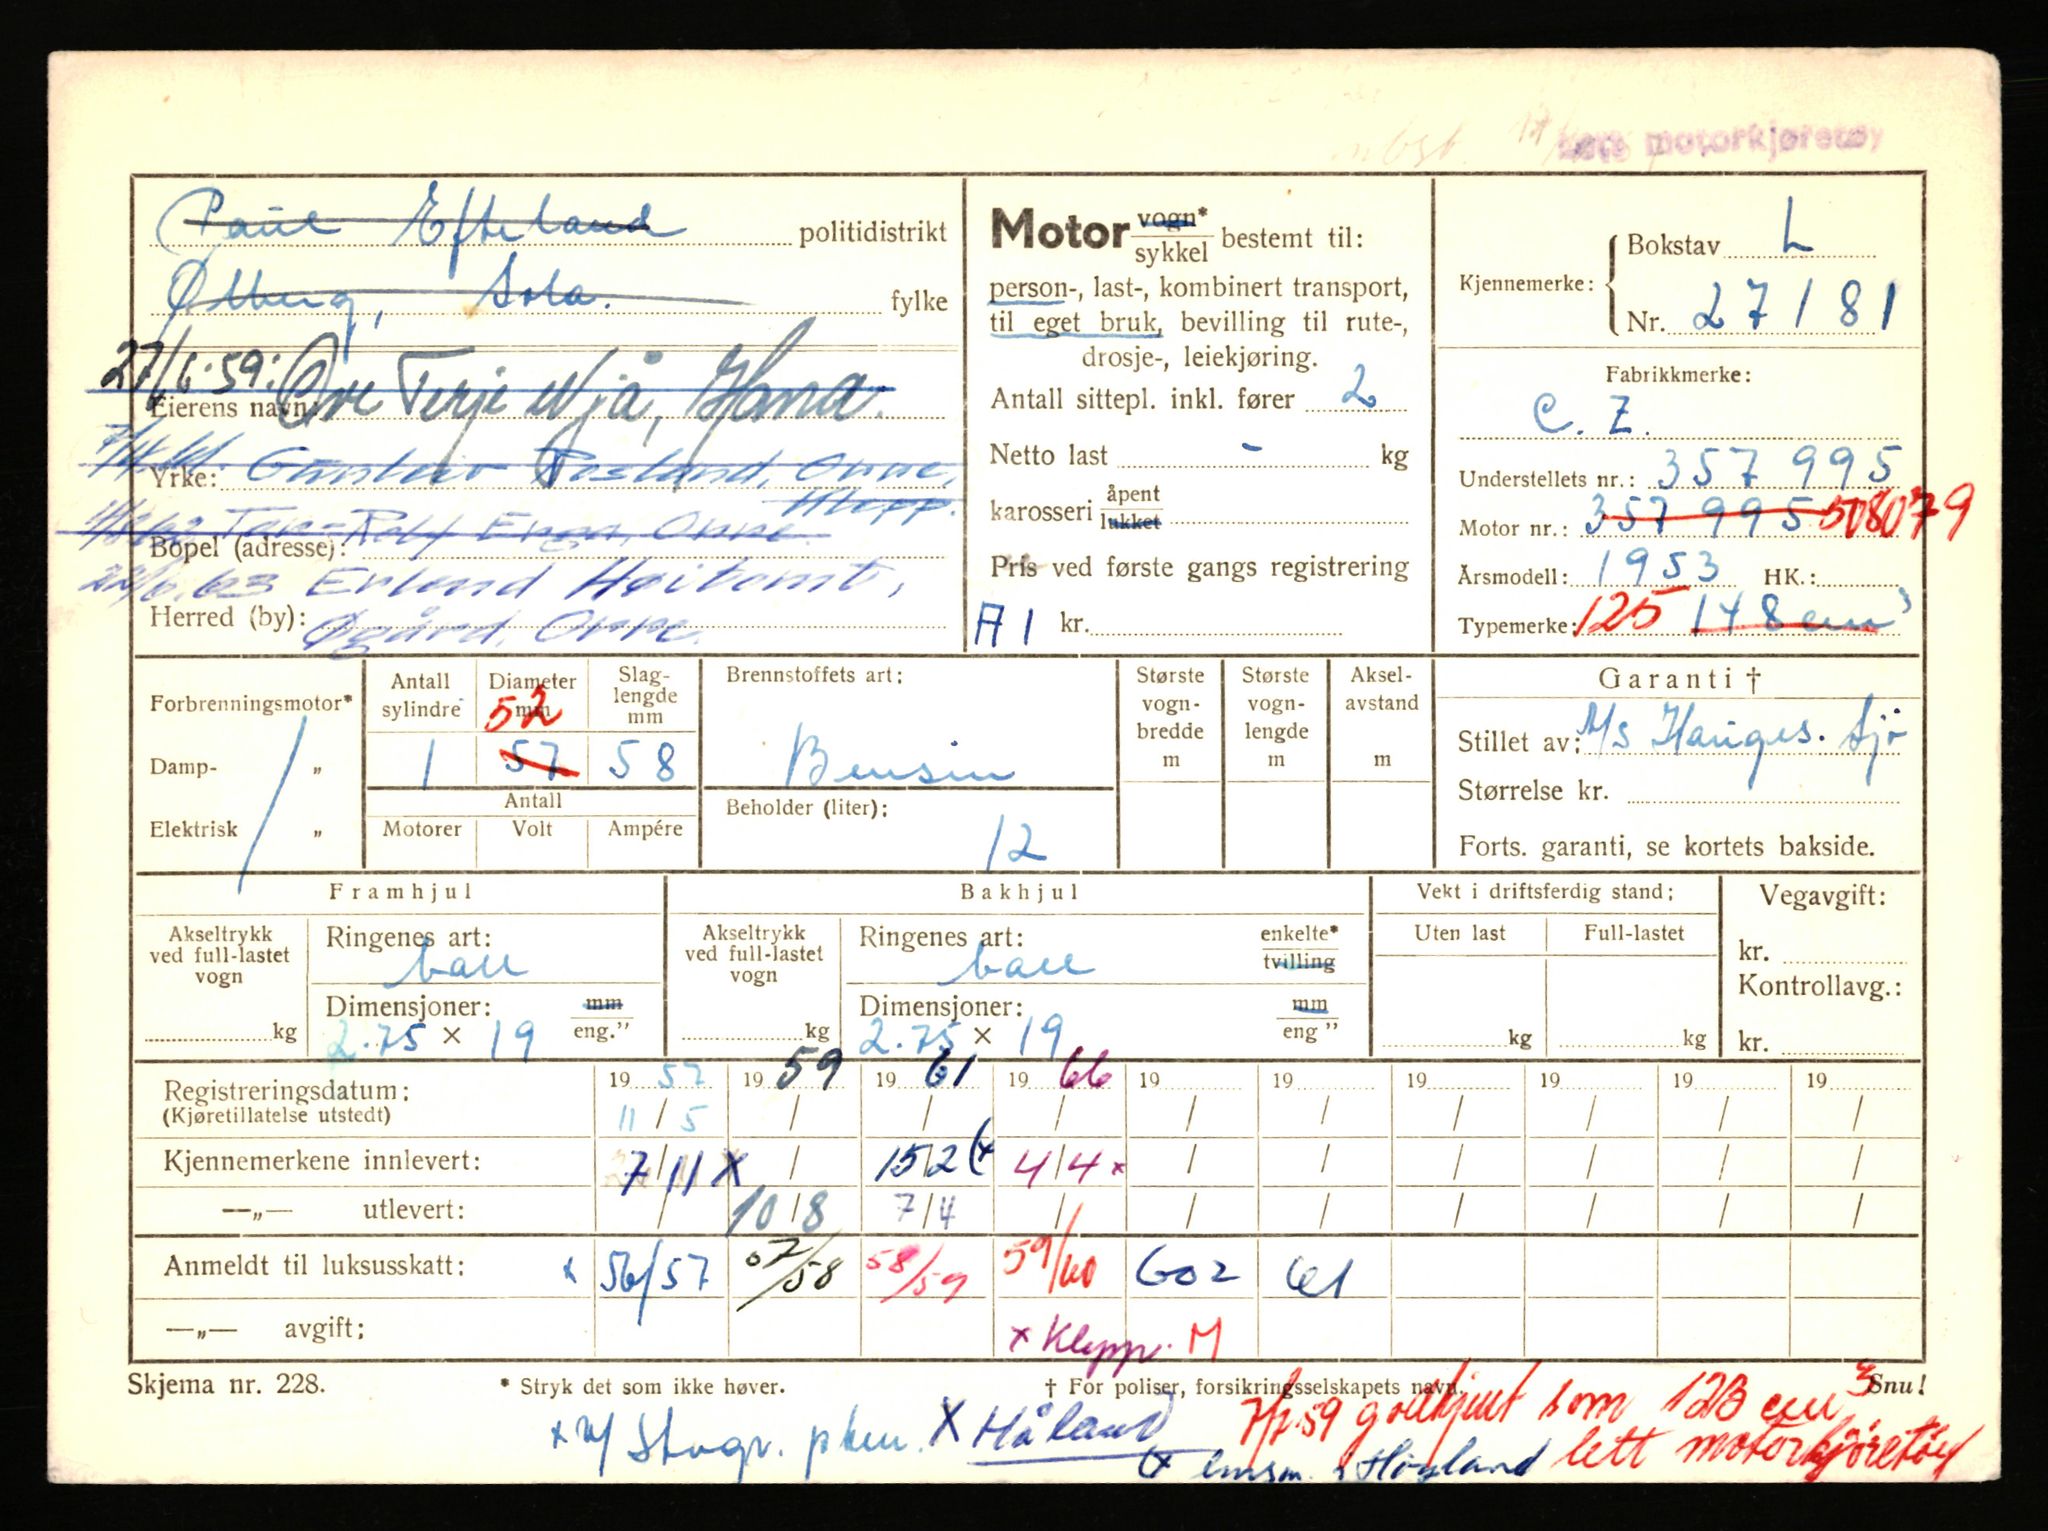 lett motorkjøretøy
Paul Efteland politidistrikt
Ølberg, Sola. fylke
27/6.59: Ove Terje Njå, Hana.
Eierens navn:
7/4.61 Gunleiv Rosland, Orre,
Yrke: Klepp.
Tor-Rolf Enga, Orre.
Bopel (adresse):
63 Erlend Høitomt,
Herred (by): Øgård, Orre.
Motor vogn* sykkel bestemt til:
person-, last-, kombinert transport,
til eget bruk, bevilling til rute-,
drosje-, leiekjøring.
Antall sittepl. inkl. fører 2
Netto last - kg
karosseri åpent lukket
Pris ved første gangs registrering
A1 kr.
Kjennemerke: Bokstav L
Nr. 27181
Fabrikkmerke:
C. Z.
Understellets nr.: 357 995
Motor nr.: 357 995 508079
Årsmodell: 1953 HK.:
Typemerke: 125 148 cm³
Forbrenningsmotor*
Damp- „
Elektrisk „
Antall sylindre 1
Diameter mm 52 57
Slaglengde mm 58
Antall
Motorer Volt Ampére
Brennstoffets art:
Bensin
Beholder (liter):
12
Største vognbredde m
Største vognlengde m
Akselavstand m
Garanti †
Stillet av: A/S Hauges. Sjø
Størrelse kr.
Forts. garanti, se kortets bakside.
Framhjul
Akseltrykk ved full-lastet vogn kg
Ringenes art:
ball
Dimensjoner: mm
2.75 × 19 eng."
Bakhjul
Akseltrykk ved full-lastet vogn kg
Ringenes art: enkelte*
ball tvilling
Dimensjoner: mm
2.75 × 19 eng "
Vekt i driftsferdig stand;
Uten last Full-lastet
kg kg
Vegavgift:
kr.
Kontrollavg.:
kr.
Registreringsdatum: 19 57 19 59 19 61 19 66 19 19 19 19 19 19
(Kjøretillatelse utstedt) 11/5 / / / / / / / / /
Kjennemerkene innlevert: 7/11 x / 15/2 (x 4/4 x / / / / / /
—„— utlevert: / 10/8 7/4 / / / / / / /
Anmeldt til luksusskatt: x 56/57 57/58 58/59 59/60 60 2 61
—„— avgift; x Klepp. M
Skjema nr. 228. * Stryk det som ikke høver. † For poliser, forsikringsselskapets navn. Snu!
x v/ Stvgr. pkm. X Håland 7/7.59 godkjent som 123 cm³
(x lmsm. i Høyland lett motorkjøretøy